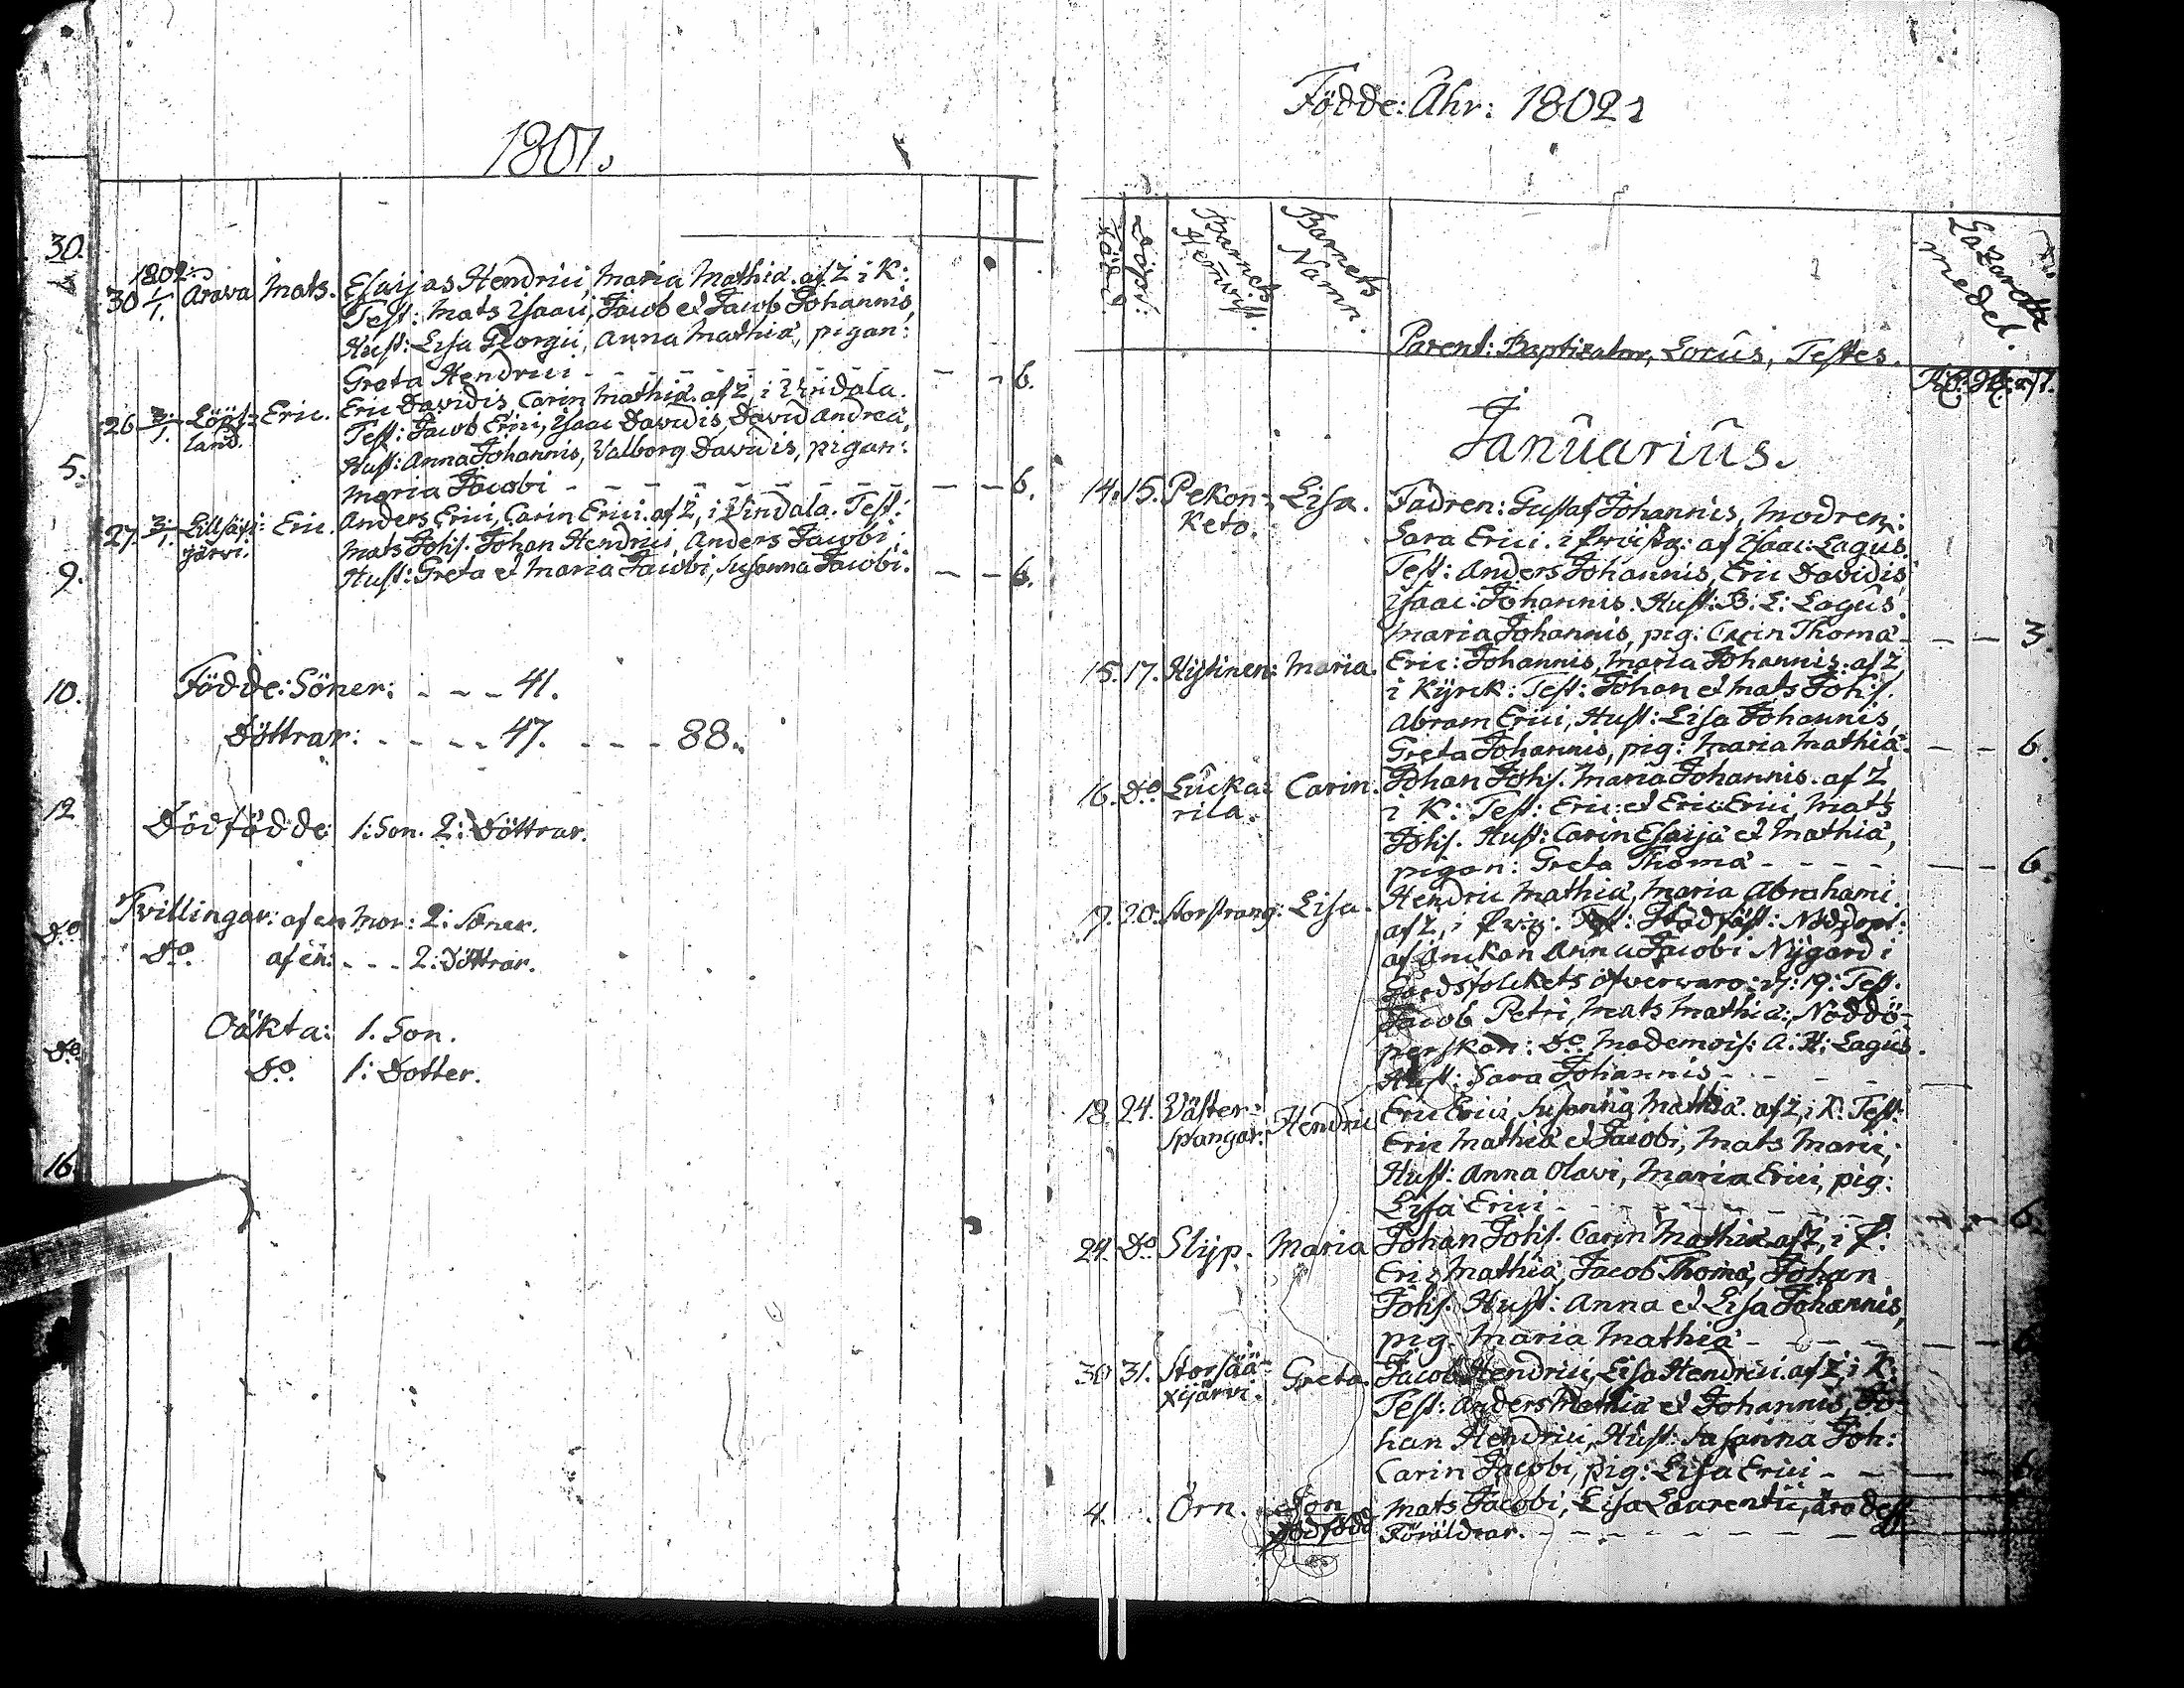 1801.
30.
5.
9.
10.
12
Do
Do
16
1802.
30 1/1. Arava Mats. Esaijas Hendrici, Maria Mathiæ. af Z i K:
Test: Mats Isaaci, Jacob et Jacob Johannis,
Hust: Lisa Georgii, Anna Mathiæ, pigan:
Greta Hendrici - - - - - - - - 6.
26 3/1. Löpp= Eric. Eric Davidis Carin Mathiæ. af Z, i Vindala.
land. Test: Jacob Erici, Isaac Davidis, David Andreæ,
Hust: Anna Johannis, Valborg Davidis, pigan:
Maria Jacobi - - - - - - - - - 6.
27. 3/1. Lillsäxi= Eric. Anders Erici, Carin Erici. af Z, i Vindala. Test:
järvi. Mats Johs. Johan Hendrici, Anders Jacobi,
Hust: Greta et Maria Jacobi, Susanna Jacobi. - - 6.
Födde: Söner: - - - 41.
Döttrar: - - - - 47. - - - 88.
Dödfödde: 1: Son. 2: Döttrar.
Tvillingar: af en Mor: 2: Söner.
Do. af en: - - - 2: Döttrar.
Oäkta: 1. Son.
Do. 1: Dotter.
Födde: Åhr: 1802
Född Döpt: Barnets Hemvist. Barnets Namn. Parent: Baptizator, Locus, Testes. Lazaretts medel.
Januarius.
14. 15. Pekon= Lisa. Fadren: Gustaf Johannis, Modren:
Keto. Sara Erici. af Isaac: Lagus.
Test: Anders Johannis, Eric Davidis,
Isaac: Johannis. Hust: B: L: Lagus,
Maria Johannis, pig: Carin Thomæ - - - 3.
15. 17. Hystinen: Maria. Eric: Johannis, Maria Johannis. af Z
i Kÿrck: Test: Johan et Mats Johs.
Abram Erici, Hust: Lisa Johannis,
Greta Johannis, pig: Maria Mathiæ. - - 6.
16. Do. Lucka= Carin. Johan Johs. Maria Johannis. af Z
rila. i K: Test: Eric: et Eric Erici, Mats
Johs. Hust: Carin Esaijæ et Mathiæ,
pigan: Greta Thomæ - - - - - - 6.
17. 20. Storstrang: Lisa. Hendric Mathiæ, Maria Abrahami.
af Z, i Test: Stadfäst: Nöddopt:
af Änckan Anna Jacobi Nÿgård i
Gårdsfolckets öfvervaro: d: 19: Test:
Jacob Petri, Mats Mathiæ, Nöddö=
perskan: Do. Mademois: A: H: Lagus.
Hust: Sara Johannis - - - - -
18. 24. Väster= Hendric Eric Erici, Susanna Mathiæ. af Z, i K: Test:
spangar. Eric Mathiæ et Jacobi, Mats Marci,
Hust: Anna Olavi, Maria Erici, pig:
Lisa Erici - - - - - - - - - 6.
24. Do Slÿp. Maria Johan Johs. Carin Mathiæ. af Z, i
Eric Mathiæ, Jacob Thomæ, Johan
Johs. Hust: Anna et Lisa Johannis,
pig. Maria Mathiæ - - - - - 6
30 31. Storsää= Greta. Jacob Hendrici, Lisa Hendrici. af Z, i K:
xijärvi. Test: Anders Mathiæ et Johannis, Jo=
han Hendrici, Hust: Susanna Joh:
Carin Jacobi, pig: Lisa Erici - - - 6
4. Örn. Son Mats Jacobi, Lisa Laurentii, äro dess
Dödfödd Föräldrar. - - - - - - -